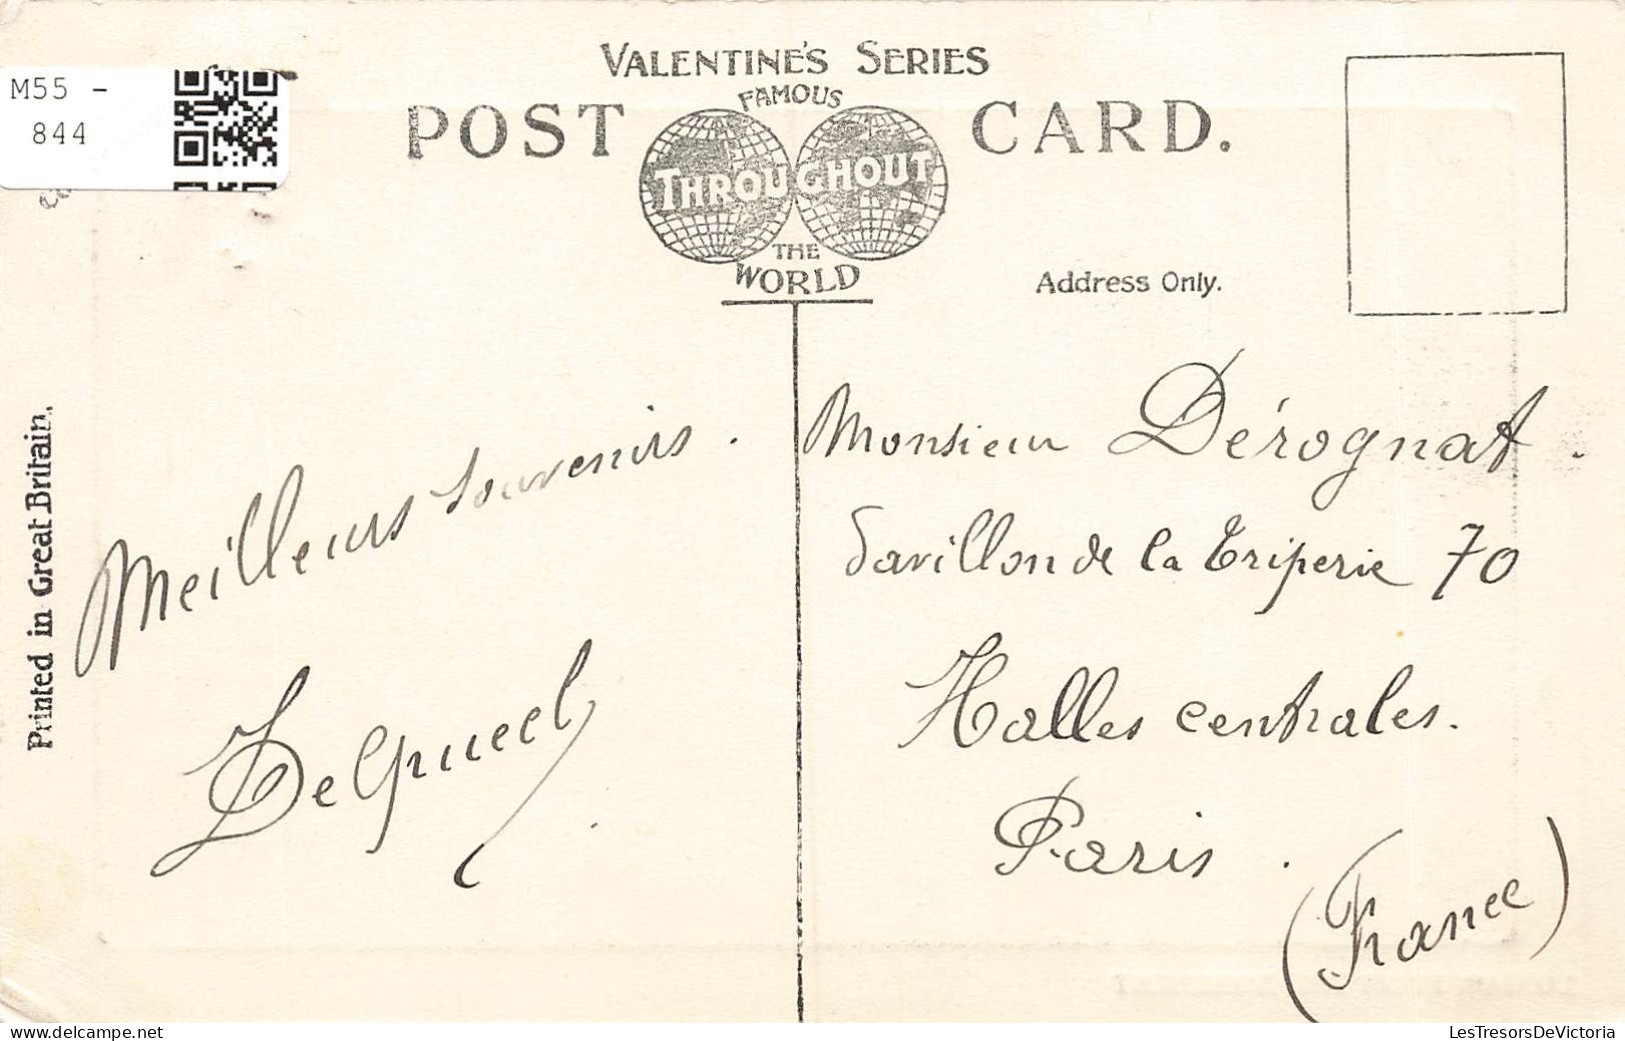 M55 -
844
VALENTINE'S SERIES
FAMOUS
POST CARD.
THROUGHOUT
THE
WORLD
Address Only.
Printed in Great Britain.
Meilleurs souvenirs.
Monsieur Dérognat.
Pavillon de la Triperie 70
Halles centrales.
Paris.
(France)
LesTresorsDeVictoria